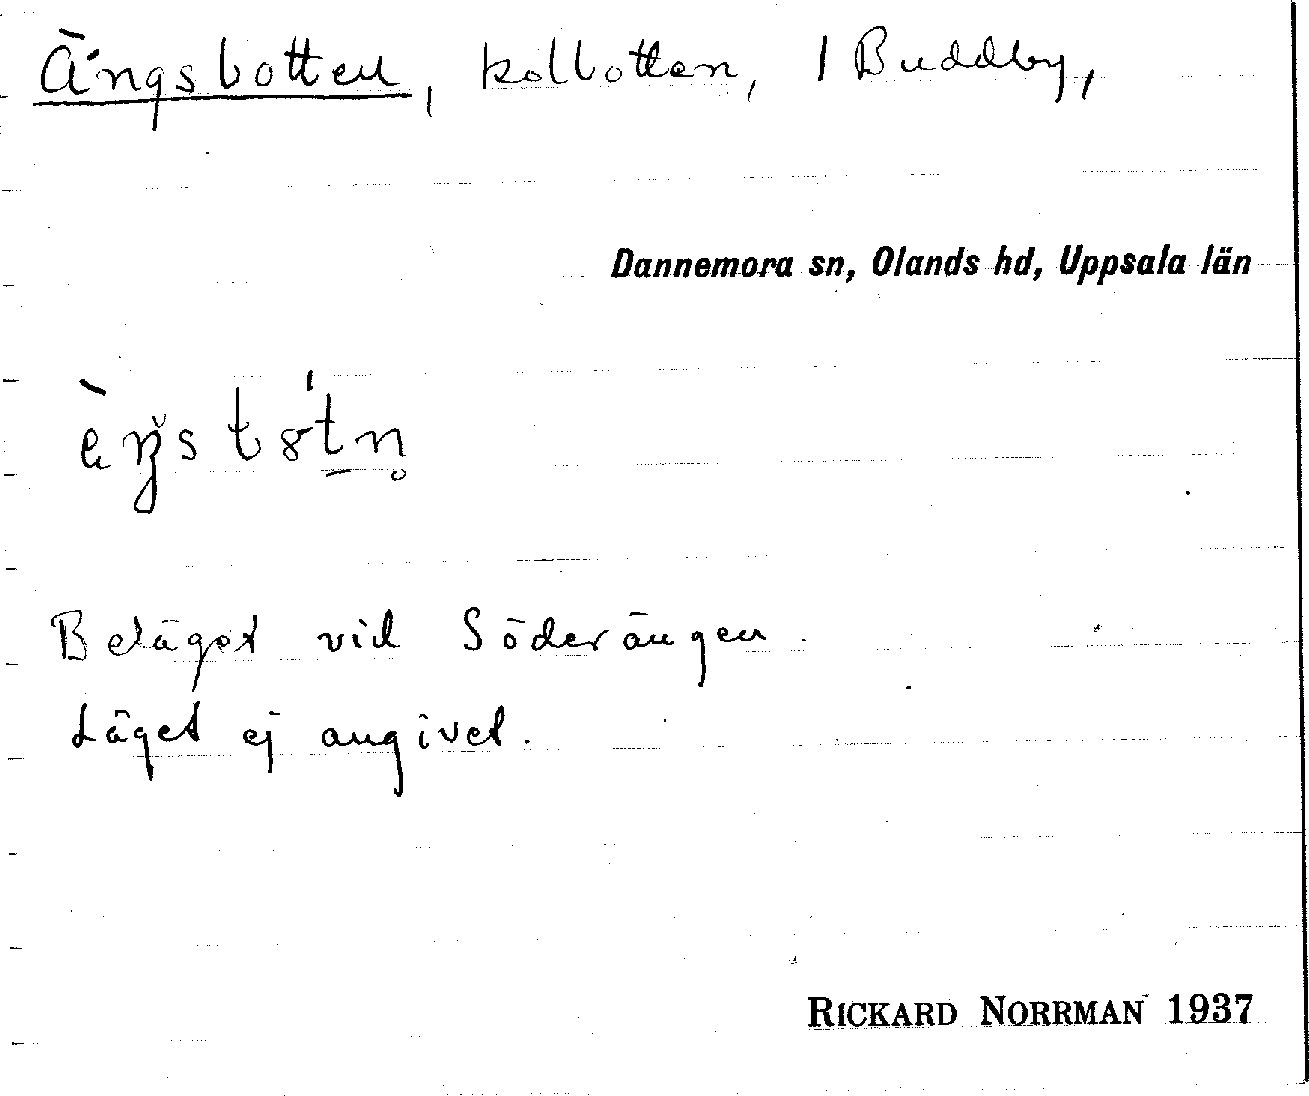 Ängsbotten, kolbotten, 1 Buddby,
Dannemora sn, Olands hd, Uppsala län
Beläget vid Söderängen.
Läget ej angivet.
RICKARD NORRMAN 1937